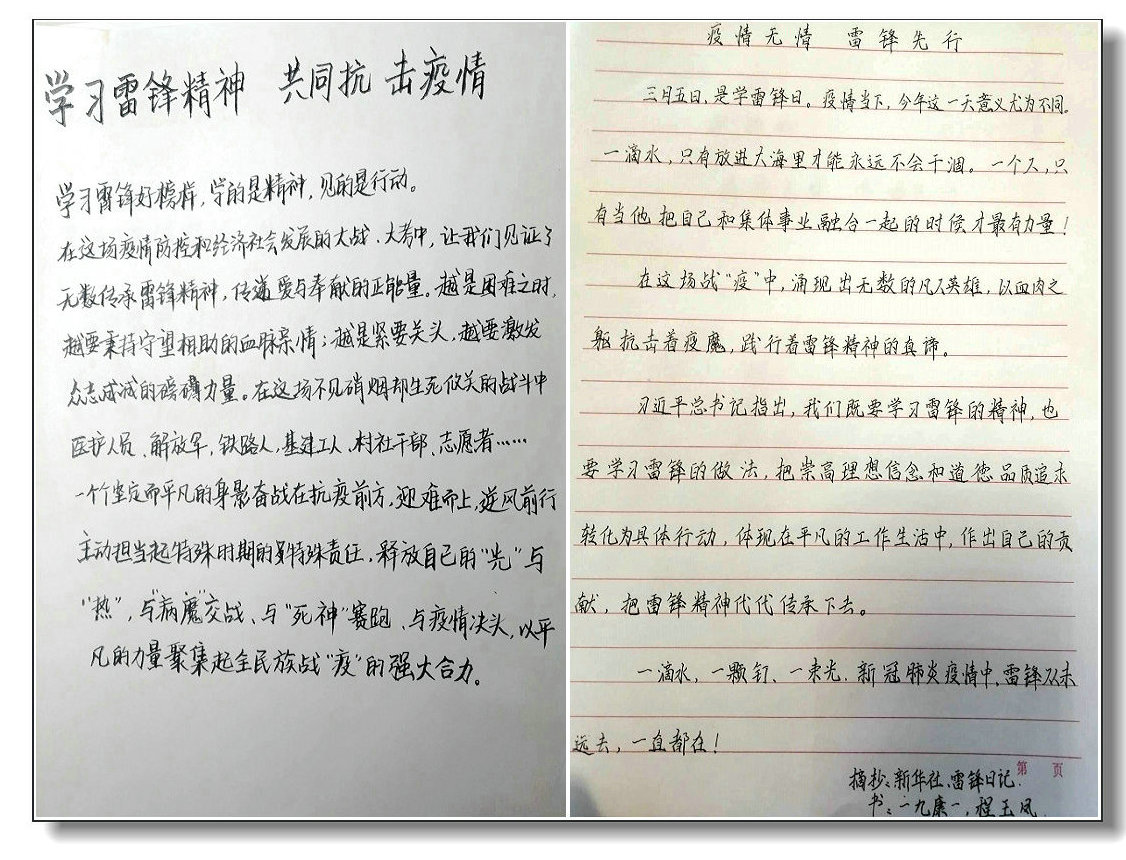 学习雷锋精神 共同抗击疫情
学习雷锋好榜样，学的是精神，见的是行动。
在这场疫情防控和经济社会发展的大战、大考中，让我们见证了
无数传承雷锋精神，传递爱与奉献的正能量。越是困难之时，
越要秉持守望相助的血脉亲情；越是紧要关头，越要激发
众志成城的磅礴力量。在这场不见硝烟却生死攸关的战斗中
医护人员、解放军，铁路人，基建工人、村社干部、志愿者……
一个个坚定而平凡的身影奋战在抗疫前方，迎难而上，逆风前行
主动担当起特殊时期的特殊责任，释放自己的“光”与
“热”，与“病魔”交战、与“死神”赛跑、与疫情决头，以平
凡的力量聚集起全民族战“疫”的强大合力。
疫情无情 雷锋先行
三月五日，是学雷锋日。疫情当下，今年这一天意义尤为不同。
一滴水，只有放进大海里才能永远不会干涸。一个人，只
有当他把自己和集体事业融合一起的时候才最有力量！
在这场战“疫”中，涌现出无数的凡人英雄，以血肉之
躯抗击着疫魔，践行着雷锋精神的真谛。
习近平总书记指出，我们既要学习雷锋的精神，也
要学习雷锋的做法，把崇高理想信念和道德品质追求
转化为具体行动，体现在平凡的工作生活中，作出自己的贡
献，把雷锋精神代代传承下去。
一滴水，一颗钉、一束光，新冠肺炎疫情中，雷锋从未
远去，一直都在！
第 页
摘抄：新华社、雷锋日记
书：一九康一，程玉凤